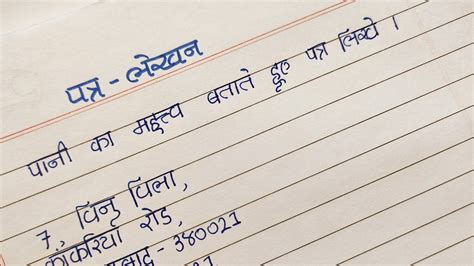 पत्र - लेखन
पानी का महत्त्व बताते हुए पत्र लिखे ।
7, विनु विला,
कांकरिया रोड,
380021